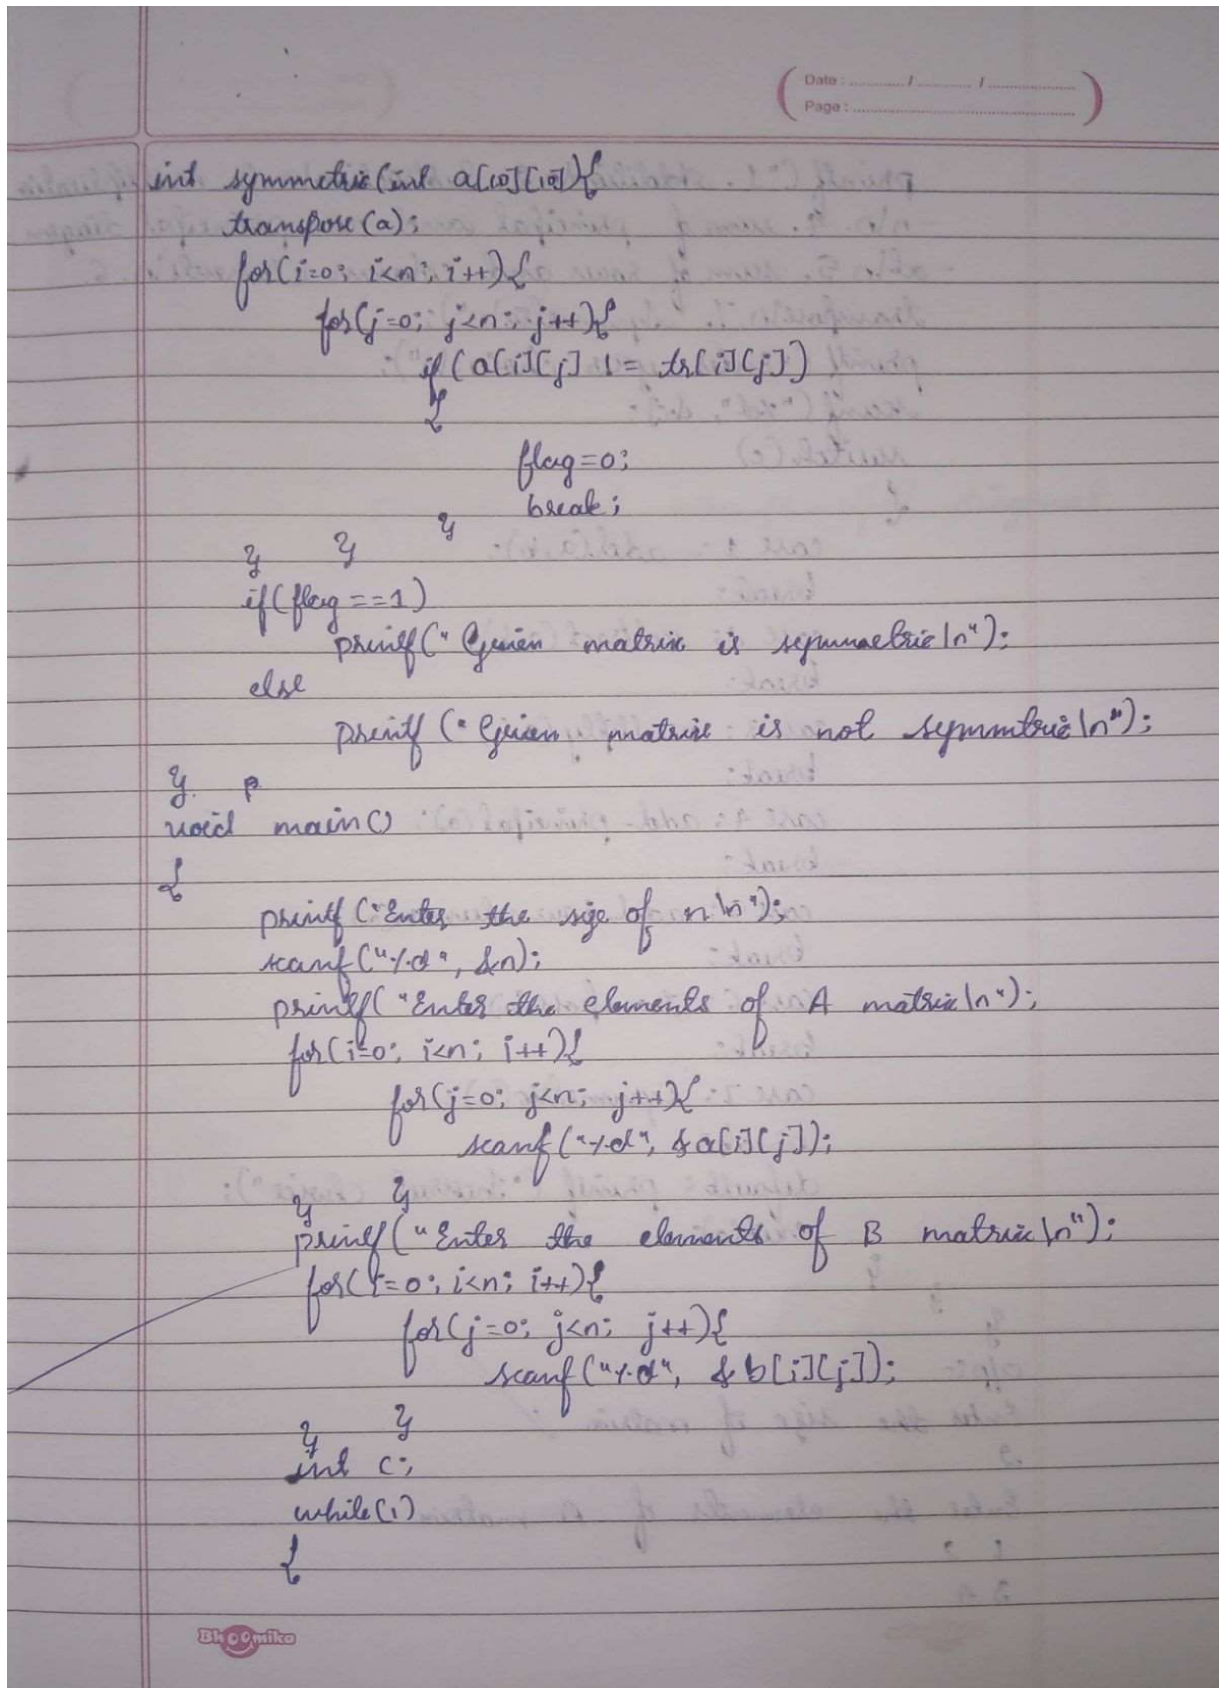 Date : ............ / ............ / ....................
Page : ..........................................
int symmetric(int a[10][10]){
transpose(a);
for(i=0; i<n; i++){
for(j=0; j<n; j++){
if(a[i][j] != tr[i][j])
{
flag=0;
break;
}
} }
if(flag==1)
printf("Given matrix is symmaetric\n");
else
printf("Given matrix is not symmtric\n");
}
void main()
{
printf("Enter the size of n\n");
scanf("%d", &n);
printf("Enter the elements of A matrix\n");
for(i=0; i<n; i++){
for(j=0; j<n; j++){
scanf("%d", &a[i][j]);
} }
printf("Enter the elements of B matrix\n");
for(i=0; i<n; i++){
for(j=0; j<n; j++){
scanf("%d", &b[i][j]);
} }
int c;
while(1)
{
Bhoomika